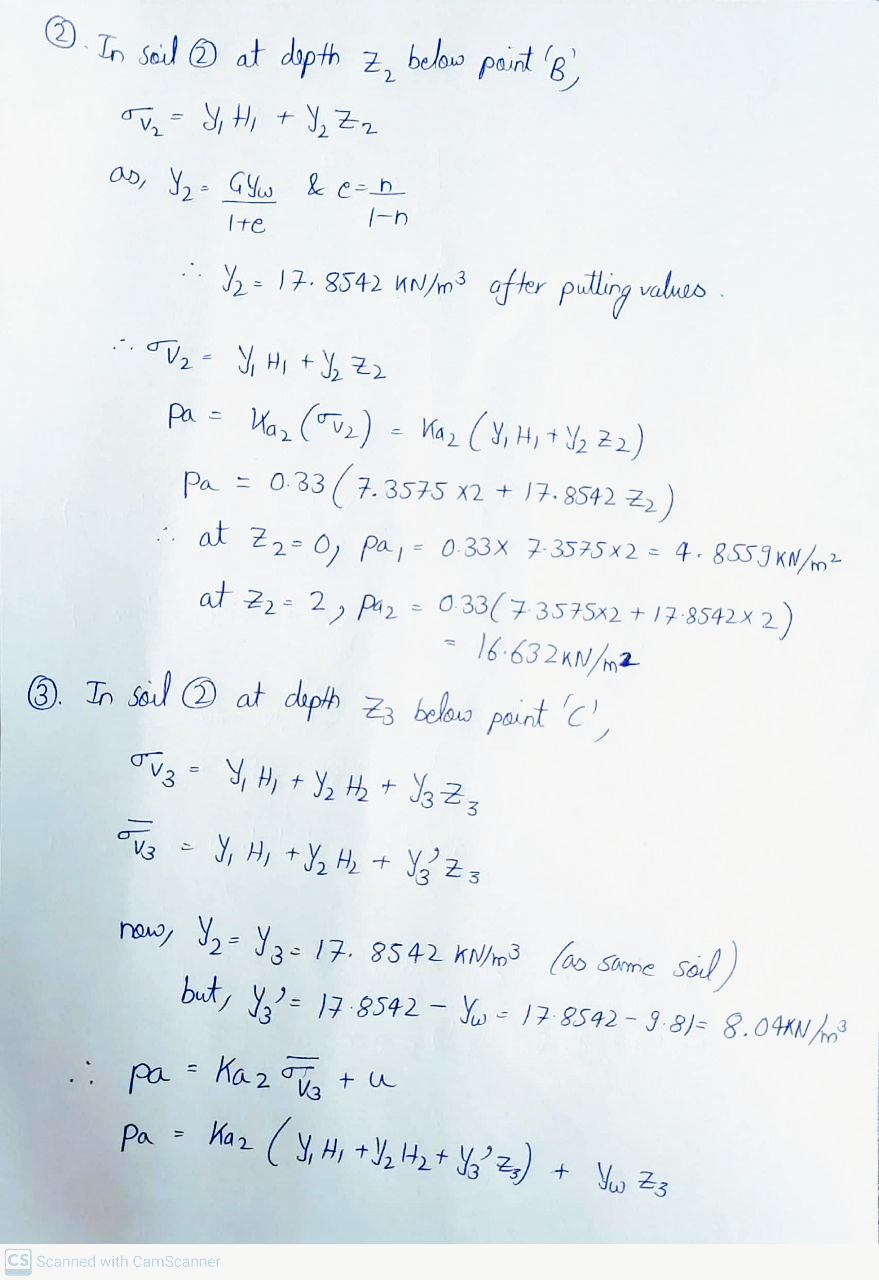 ②. In soil ② at depth z₂ below point 'B',
σv₂ = γ₁ H₁ + γ₂ Z₂
as, γ₂ = Gγw / 1+e & e = n / 1-n
∴ γ₂ = 17.8542 KN/m³ after putting values.
∴ σv₂ = γ₁ H₁ + γ₂ Z₂
Pa = Ka₂ (σv₂) = Ka₂ (γ₁ H₁ + γ₂ Z₂)
Pa = 0.33 (7.3575 x2 + 17.8542 Z₂)
∴ at Z₂ = 0, Pa₁ = 0.33x 7.3575x2 = 4.8559 KN/m²
at Z₂ = 2, Pa₂ = 0.33(7.3575x2 + 17.8542x2)
= 16.632 KN/m2
③. In soil ② at depth Z₃ below point 'C',
σv₃ = γ₁ H₁ + γ₂ H₂ + γ₃ Z₃
σ̿v₃ = γ₁ H₁ + γ₂ H₂ + γ₃' Z₃
now, γ₂ = γ₃ = 17.8542 KN/m³ (as same soil)
but, γ₃' = 17.8542 - γw = 17.8542 - 9.81 = 8.04KN/m³
∴ Pa = Ka₂ σ̿v₃ + u
Pa = Ka₂ (γ₁ H₁ + γ₂ H₂ + γ₃' Z₃) + γw Z₃
CS Scanned with CamScanner